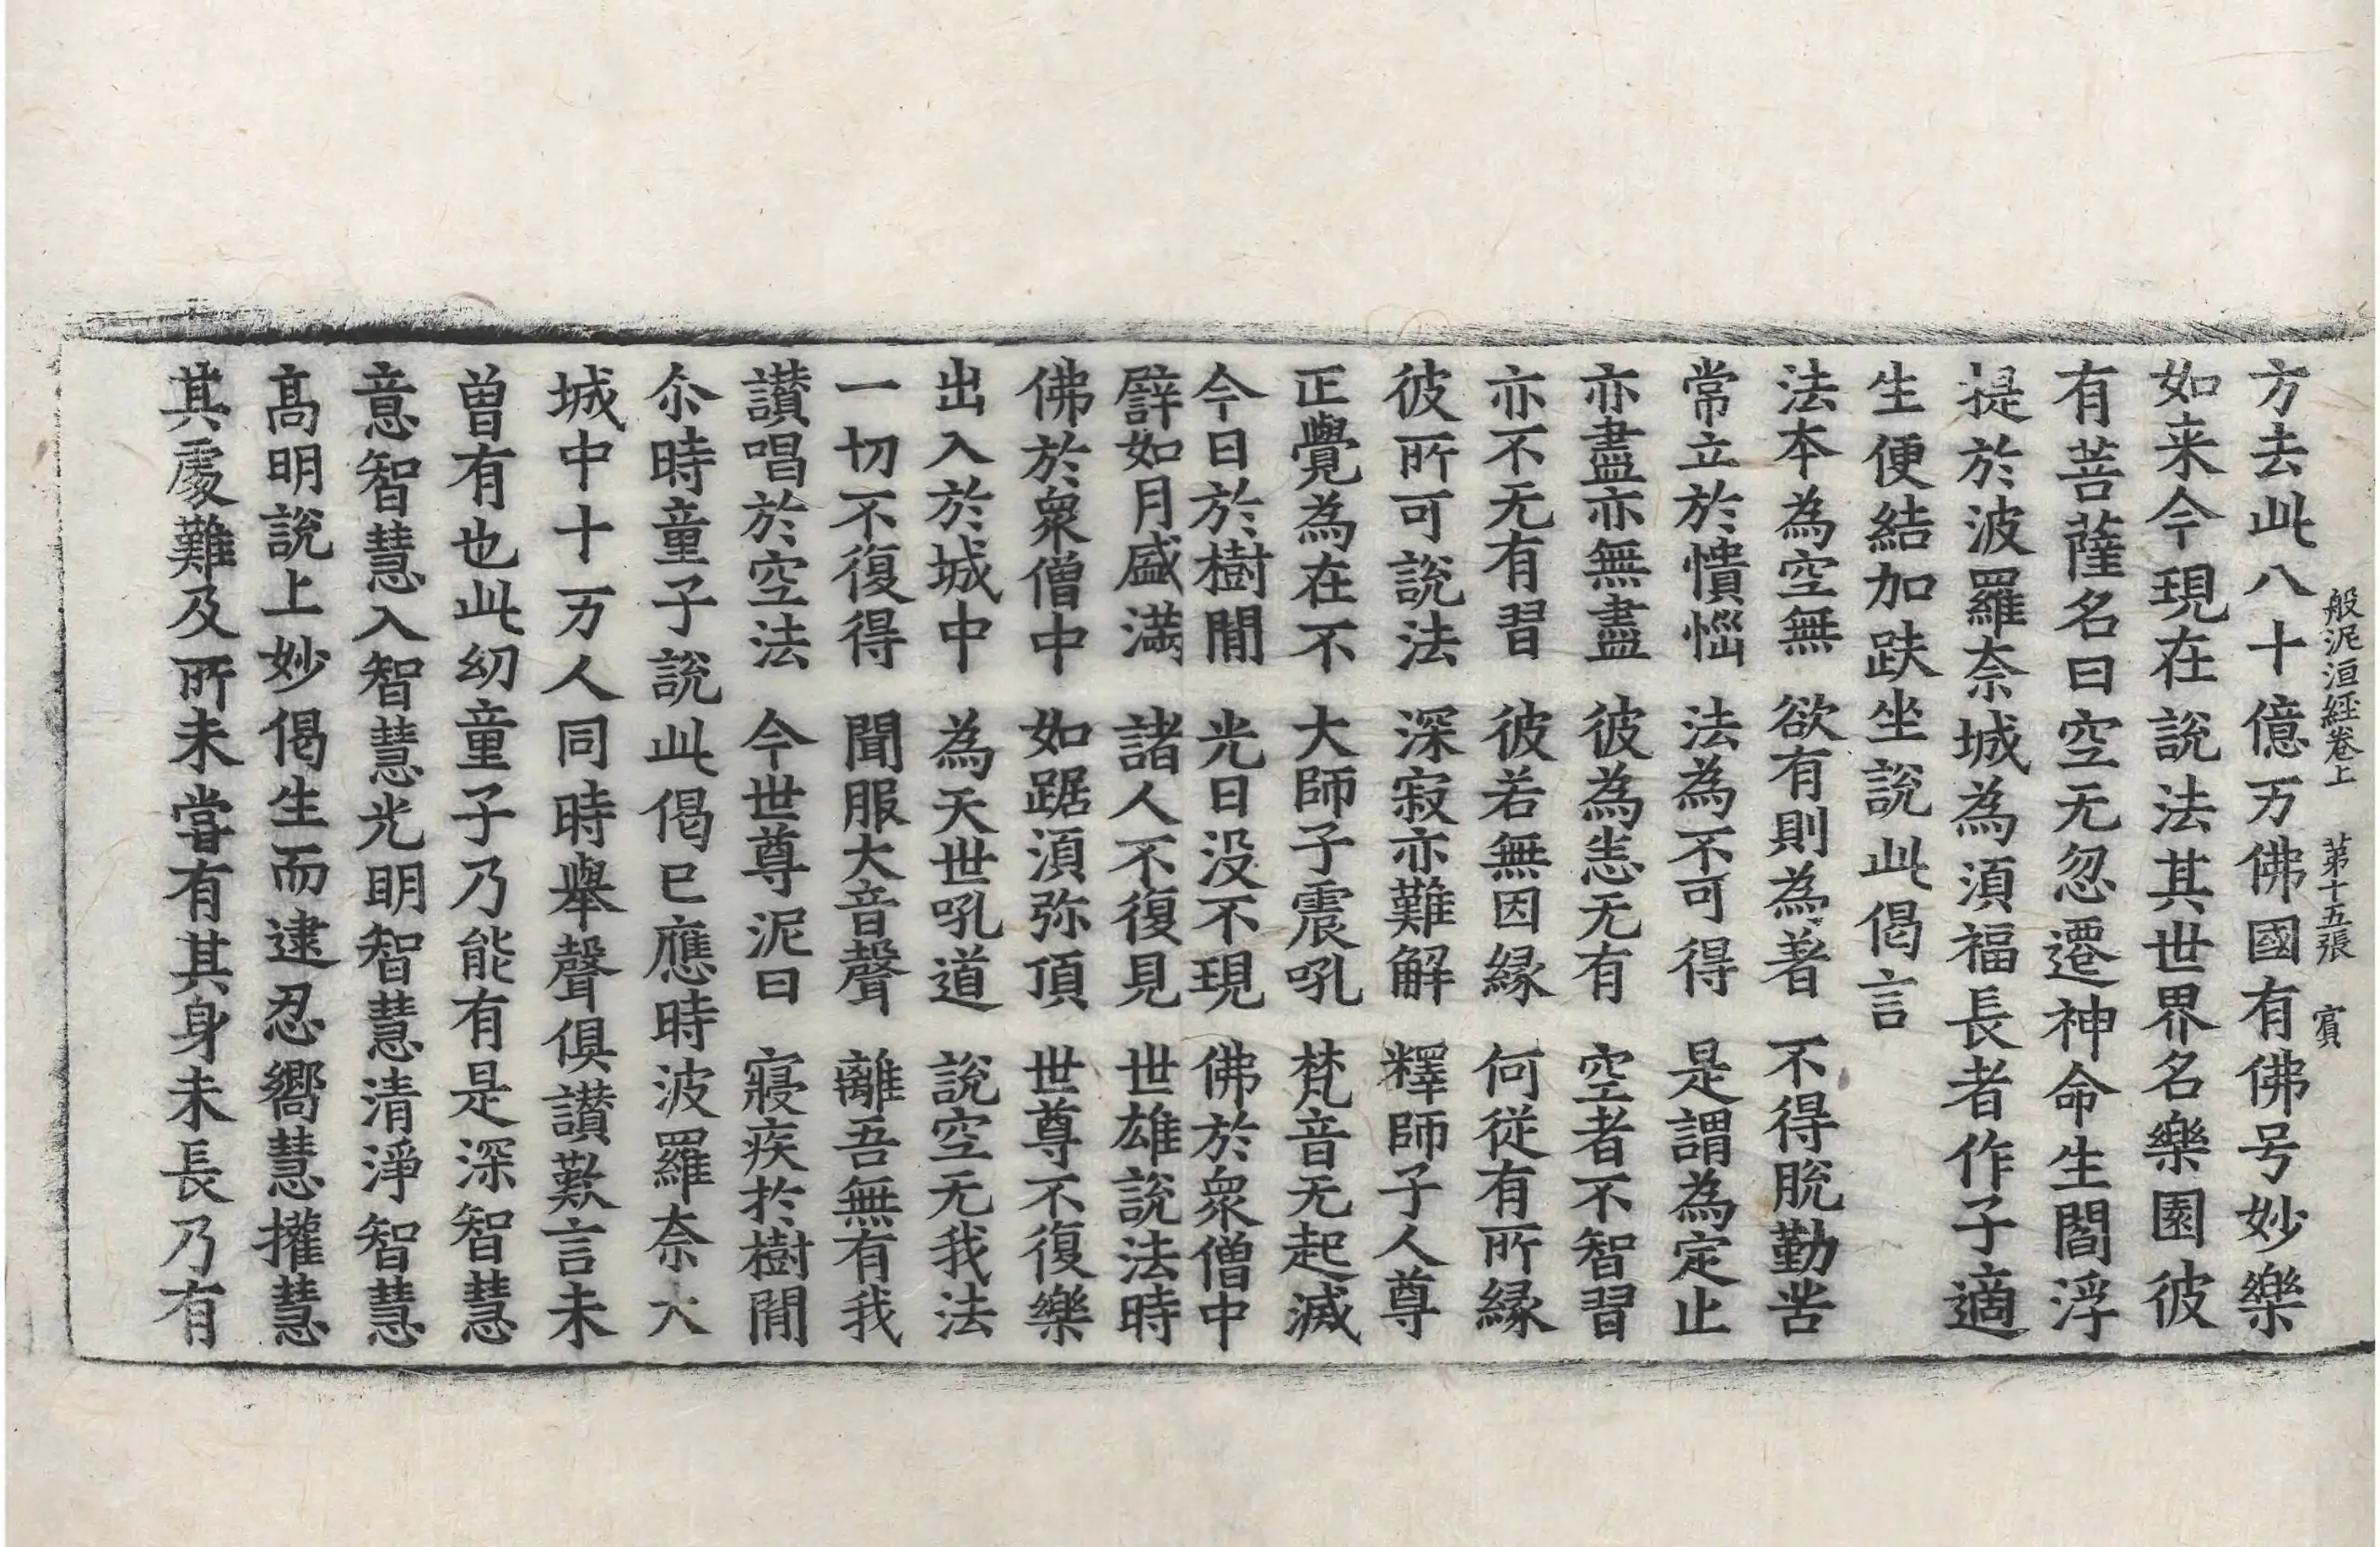 般泥洹經卷上　第十五張　賓
方去此八十億万佛國有佛号妙樂
如来今現在說法其世界名樂園彼
有菩薩名曰空无忽遷神命生閻浮
提於波羅奈城為湏福長者作子適
生便結加趺坐說此偈言
法本為空無　欲有則為著　不得脫勤苦
常立於憒𢙉　法為不可得　是謂為定止
亦盡亦無盡　彼為恚无有　空者不智習
亦不无有習　彼若無因縁　何從有所縁
彼所可說法　深寂亦難解　釋師子人尊
正覺為在不　大師子震吼　梵音无起滅
今日於樹閒　光日没不現　佛於衆僧中
譬如月盛滿　諸人不復見　世雄說法時
佛於衆僧中　如踞湏弥頂　世尊不復樂
出入於城中　為天世吼道　說空无我法
一切不復得　聞服大音聲　離吾無有我
讃唱於空法　今世尊泥曰　寢疾於樹閒
尒時童子說此偈已應時波羅奈大
城中十万人同時舉聲俱讃歎言未
曽有也此幼童子乃能有是深智慧
意智慧入智慧光明智慧清淨智慧
髙明說上妙偈生而逮忍嚮慧㩲慧
其處難及所未嘗有其身未長乃有